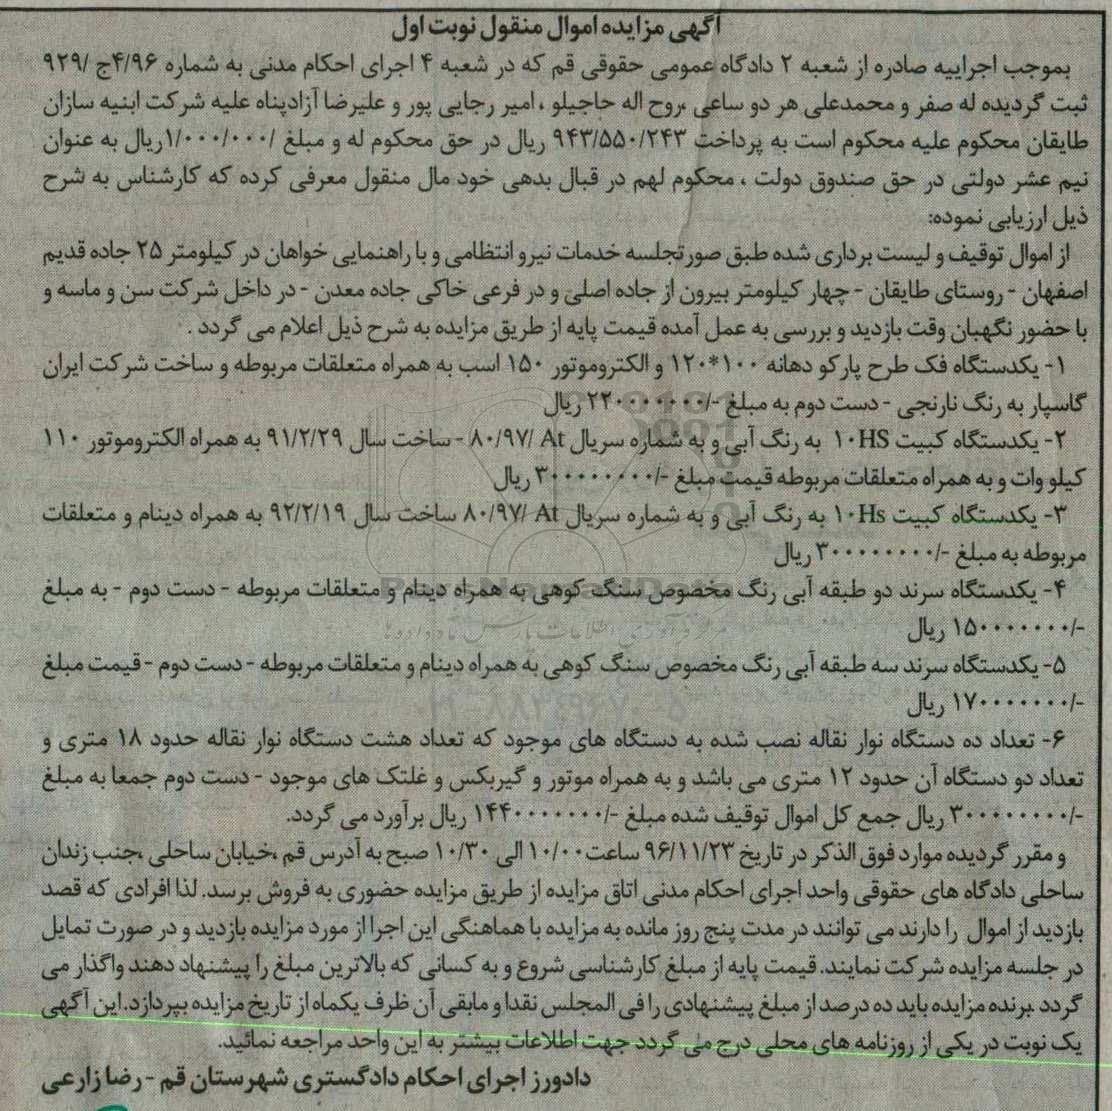 آگهی مزایده اموال منقول نوبت اول
بموجب اجراییه صادره از شعبه ۲ دادگاه عمومی حقوقی قم که در شعبه ۴ اجرای احکام مدنی به شماره ۴/۹۶ج /۹۲۹
ثبت گردیده له صفر و محمدعلی هر دو ساعی ،روح اله حاجیلو ، امیر رجایی پور و علیرضا آزادپناه علیه شرکت ابنیه سازان
طایقان محکوم علیه محکوم است به پرداخت ۹۴۳/۵۵۰/۲۴۳ ریال در حق محکوم له و مبلغ /۱/۰۰۰/۰۰۰ریال به عنوان
نیم عشر دولتی در حق صندوق دولت ، محکوم لهم در قبال بدهی خود مال منقول معرفی کرده که کارشناس به شرح
ذیل ارزیابی نموده:
از اموال توقیف و لیست برداری شده طبق صورتجلسه خدمات نیرو انتظامی و با راهنمایی خواهان در کیلومتر ۲۵ جاده قدیم
اصفهان - روستای طایقان - چهار کیلومتر بیرون از جاده اصلی و در فرعی خاکی جاده معدن - در داخل شرکت سن و ماسه و
با حضور نگهبان وقت بازدید و بررسی به عمل آمده قیمت پایه از طریق مزایده به شرح ذیل اعلام می گردد .
۱- یکدستگاه فک طرح پارکو دهانه ۱۰۰*۱۲۰ و الکتروموتور ۱۵۰ اسب به همراه متعلقات مربوطه و ساخت شرکت ایران
گاسپار به رنگ نارنجی - دست دوم به مبلغ -/۲۲۰۰۰۰۰۰۰ ریال
۲- یکدستگاه کبیت 10HS به رنگ آبی و به شماره سریال At /۸۰/۹۷ - ساخت سال ۹۱/۲/۲۹ به همراه الکتروموتور ۱۱۰
کیلو وات و به همراه متعلقات مربوطه قیمت مبلغ -/۳۰۰۰۰۰۰۰۰ ریال
۳- یکدستگاه کبیت 10Hs به رنگ آبی و به شماره سریال At /۸۰/۹۷ ساخت سال ۹۲/۲/۱۹ به همراه دینام و متعلقات
مربوطه به مبلغ -/۳۰۰۰۰۰۰۰۰ ریال
۴- یکدستگاه سرند دو طبقه آبی رنگ مخصوص سنگ کوهی به همراه دینام و متعلقات مربوطه - دست دوم - به مبلغ
-/۱۵۰۰۰۰۰۰۰ ریال
۵- یکدستگاه سرند سه طبقه آبی رنگ مخصوص سنگ کوهی به همراه دینام و متعلقات مربوطه - دست دوم - قیمت مبلغ
-/۱۷۰۰۰۰۰۰۰ ریال
۶- تعداد ده دستگاه نوار نقاله نصب شده به دستگاه های موجود که تعداد هشت دستگاه نوار نقاله حدود ۱۸ متری و
تعداد دو دستگاه آن حدود ۱۲ متری می باشد و به همراه موتور و گیربکس و غلتک های موجود - دست دوم جمعا به مبلغ
-/۳۰۰۰۰۰۰۰۰ ریال جمع کل اموال توقیف شده مبلغ -/۱۴۴۰۰۰۰۰۰۰ ریال برآورد می گردد.
و مقرر گردیده موارد فوق الذکر در تاریخ ۹۶/۱۱/۲۳ ساعت۱۰/۰۰ الی ۱۰/۳۰ صبح به آدرس قم ،خیابان ساحلی ،جنب زندان
ساحلی دادگاه های حقوقی واحد اجرای احکام مدنی اتاق مزایده از طریق مزایده حضوری به فروش برسد. لذا افرادی که قصد
بازدید از اموال را دارند می توانند در مدت پنج روز مانده به مزایده با هماهنگی این اجرا از مورد مزایده بازدید و در صورت تمایل
در جلسه مزایده شرکت نمایند. قیمت پایه از مبلغ کارشناسی شروع و به کسانی که بالاترین مبلغ را پیشنهاد دهند واگذار می
گردد .برنده مزایده باید ده درصد از مبلغ پیشنهادی را فی المجلس نقدا و مابقی آن ظرف یکماه از تاریخ مزایده بپردازد. این آگهی
یک نوبت در یکی از روزنامه های محلی درج می گردد جهت اطلاعات بیشتر به این واحد مراجعه نمائید.
دادورز اجرای احکام دادگستری شهرستان قم - رضا زارعی
ParsNamadData